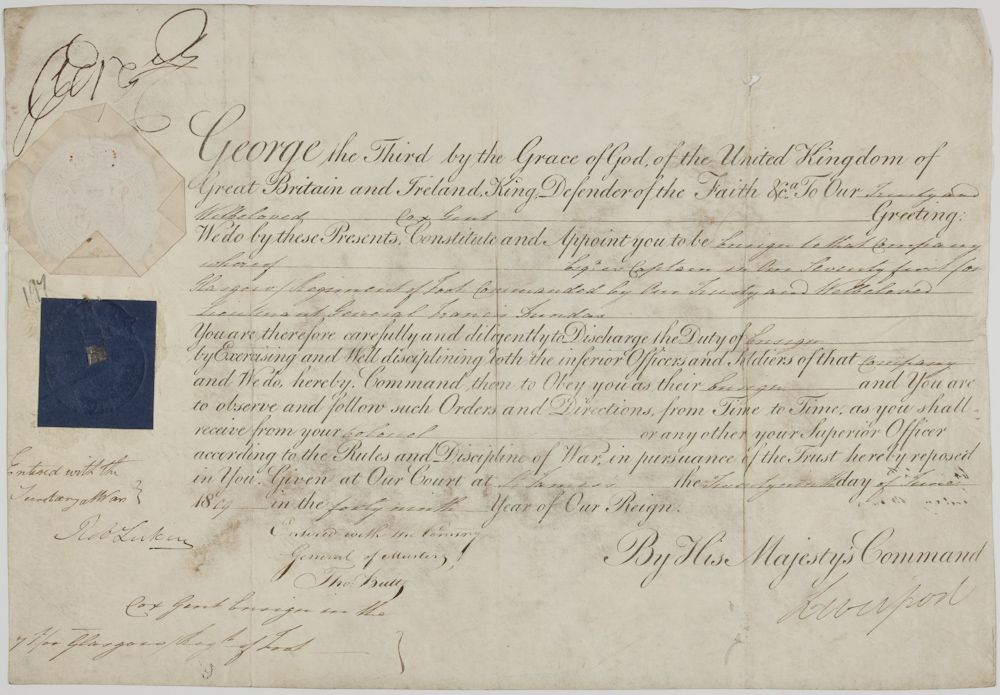 George R
George the Third by the Grace of God, of the United Kingdom of
Great Britain and Ireland, King, Defender of the Faith &c.a To Our Trusty and
Welbeloved Cox Gent Greeting:
We do by these Presents, Constitute and Appoint you to be Ensign to that Company
whereof Esqr. is Captain in Our Seventy first (or
Glasgow) Regiment of Foot Commanded by Our Trusty and Welbeloved
Lieutenant General Francis Dundas
You are therefore carefully and diligently to Discharge the Duty of Ensign
by Exercising and Well disciplining both the inferior Officers and Soldiers of that Company
and We do, hereby, Command them to Obey you as their Ensign and You are
to observe and follow such Orders and Directions, from Time to Time, as you shall
receive from your Colonel or any other your Superior Officer
according to the Rules and Discipline of War, in pursuance of the Trust hereby reposed
in You. Given at Our Court at St. James's the day of June
1809 in the forty ninth Year of Our Reign.
By His Majesty's Command
Liverpool
197
Entered with the
Secretary at War
Entered with the Commry
General of Musters
Cox Gent Ensign in the
71st (or Glasgow) Regt. of Foot